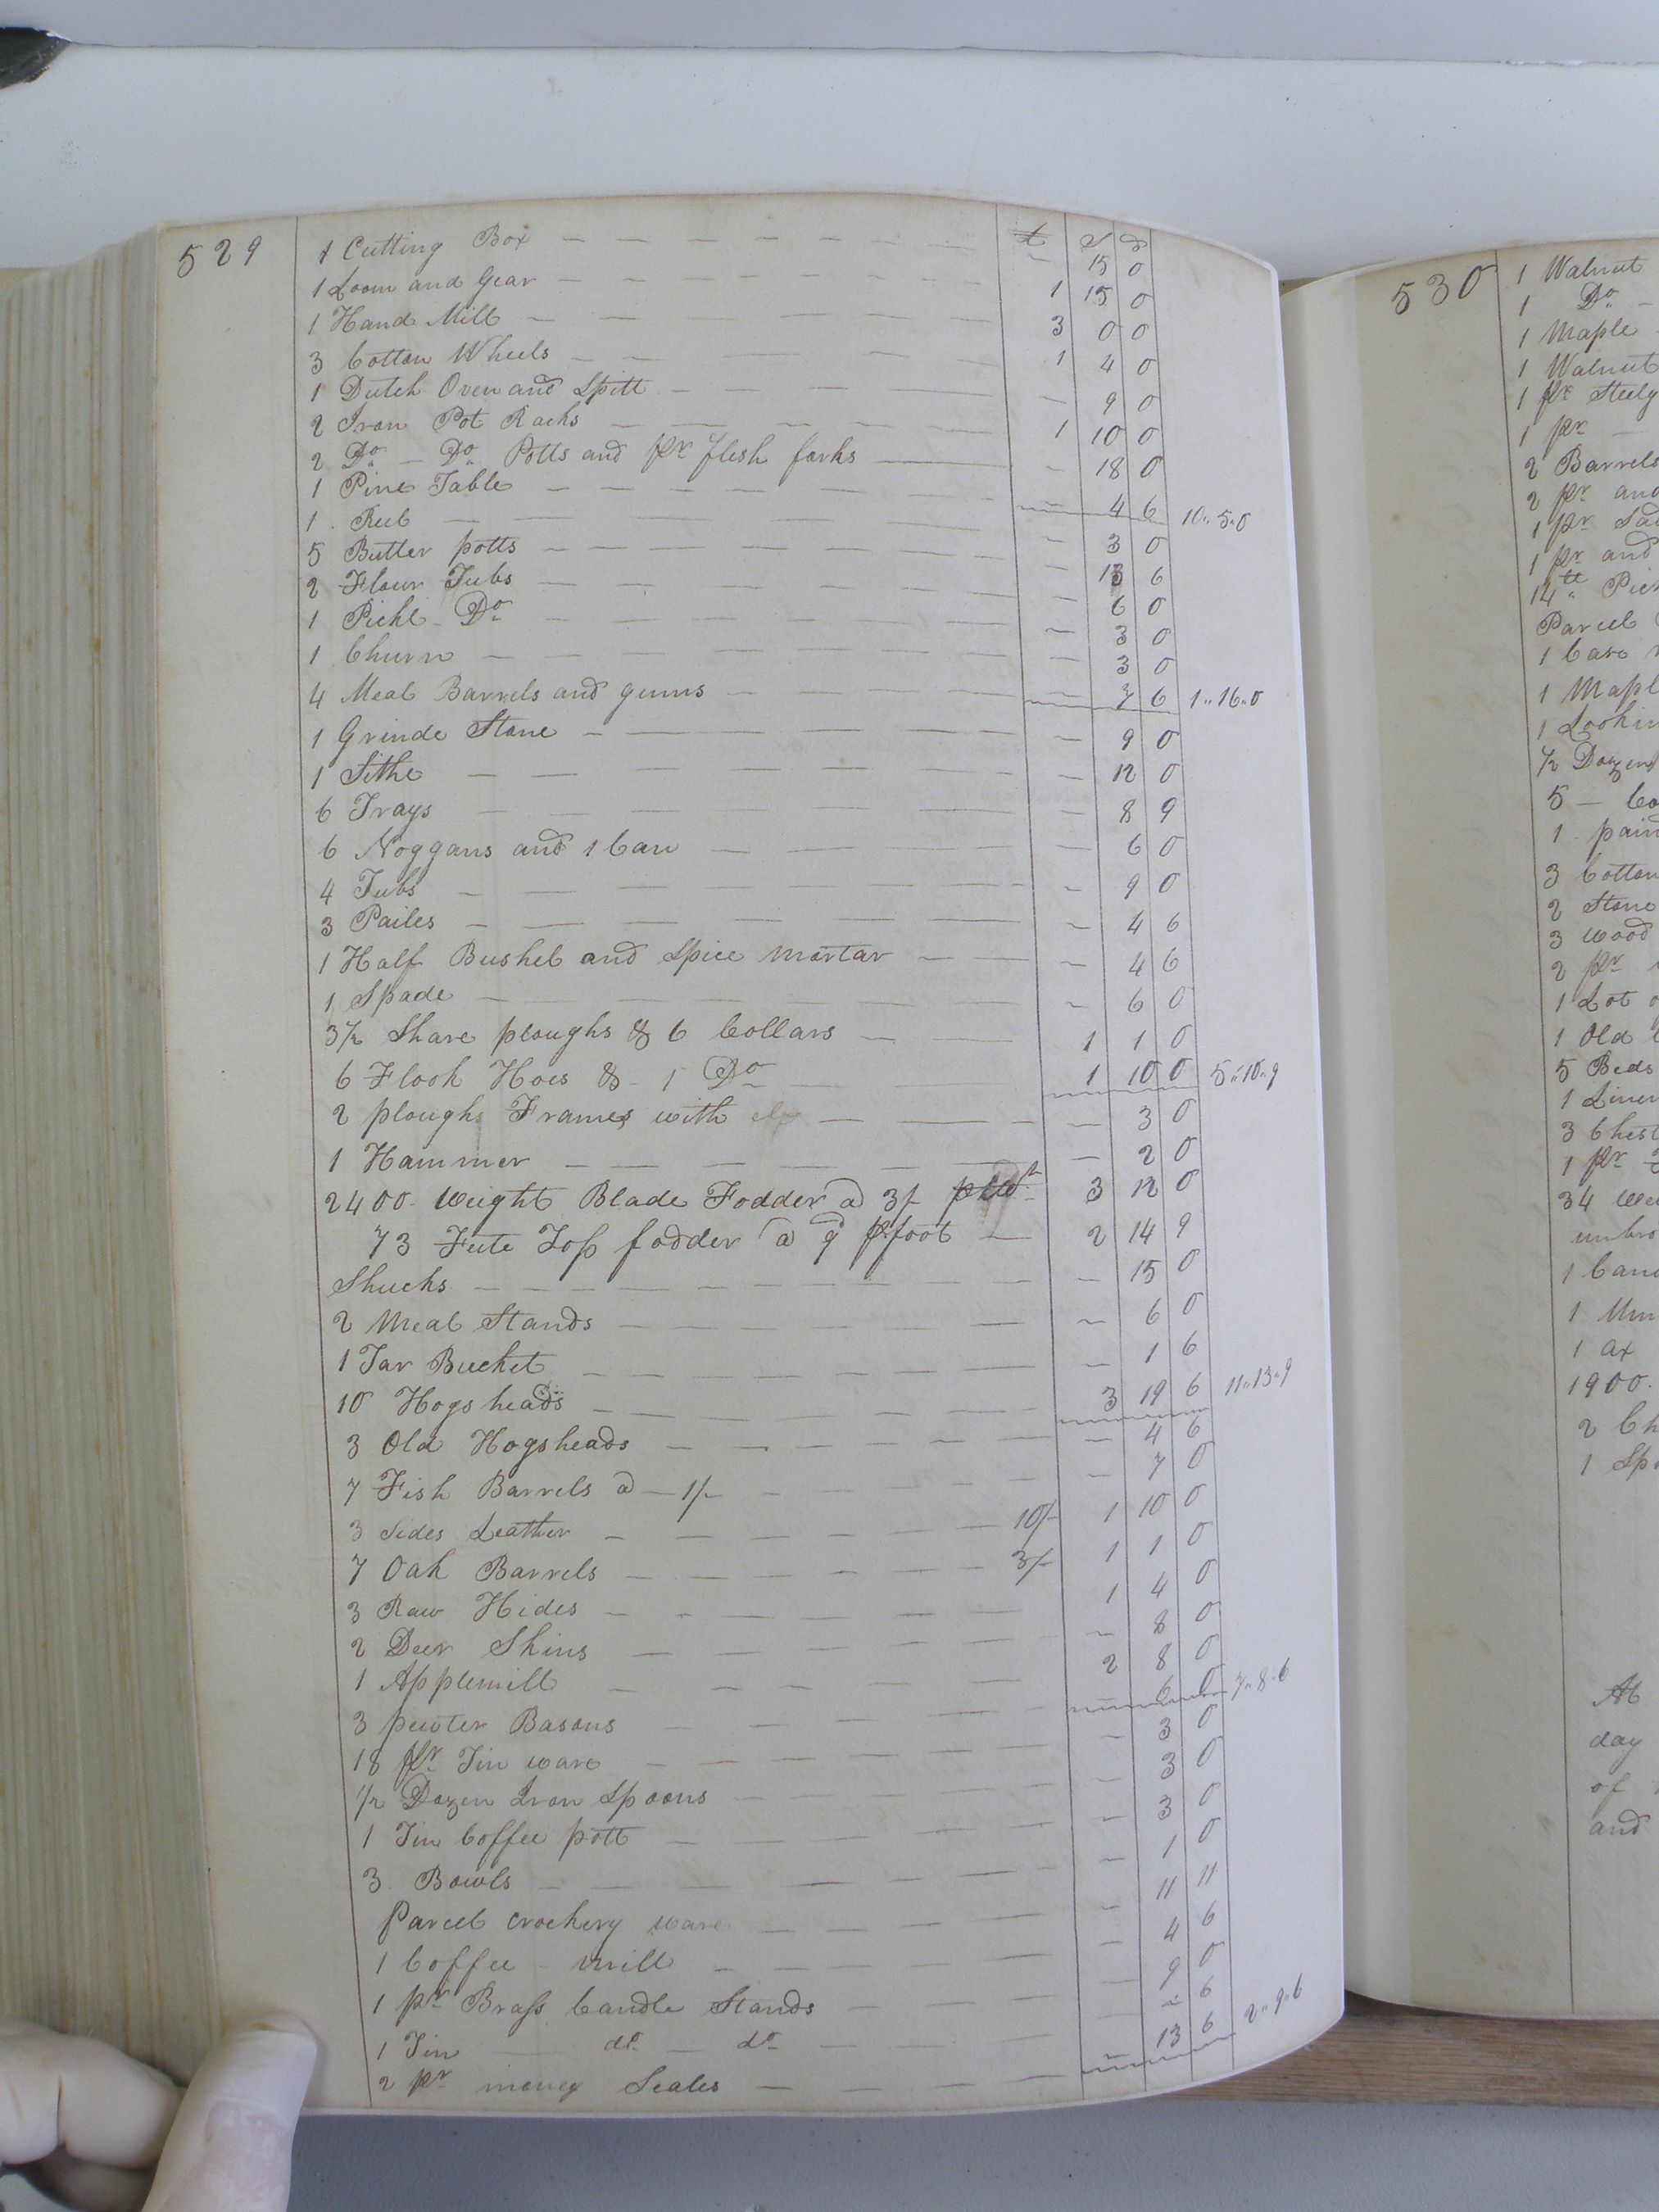 529
£ S d
1 Cutting Box — 15 0
1 Loom and Gear — 1 15 0
1 Hand Mill — 3 0 0
3 Cotton Wheels — 1 4 0
1 Dutch Oven and Spitt — 9 0
2 Iron Pot Racks — 1 10 0
2 Do — Do Potts and pr flesh forks — 18 0
1 Pine Table — 4 6 10..5..0
1 Reel — 3 0
5 Butter potts — 13 6
2 Flour Tubs — 6 0
1 Pickl Do — 3 0
1 Churn — 3 0
4 Meal Barrels and gums — 7 6 1..16..0
1 Grinde Stone — 9 0
1 Sithe — 12 0
6 Trays — 8 9
6 Noggans and 1 Can — 6 0
4 Tubs — 9 0
3 Pailes — 4 6
1 Half Bushel and Spice mortar — 4 6
1 Spade — 6 0
3½ Share ploughs & 6 Collars — 1 1 0
6 Flook Hoes & 1 Do 1 10 0 5..10..9
2 ploughs Frames with — 3 0
1 Hammer — 2 0
2400 weight Blade Fodder @ 3/- 3 12 0
73 Fute Top fodder @ 9d pr foot — 2 14 9
Shucks — 15 0
2 Meal Stands — 6 0
1 Tar Bucket — 1 6
10 Hogsheads — 3 19 6 11..13..9
3 Old Hogsheads — 4 6
7 Fish Barrels @ — 1/- — 7 0
3 Sides Leather — 10/- 1 10 0
7 Oak Barrels — 3/- 1 1 0
3 Raw Hides — 1 4 0
2 Deer Skins — 8 0
1 Applemill — 2 8 0
3 pewter Basons — 6 0 7..8..6
18 pr Tin ware — 3 0
½ Dozen Iron Spoons — 3 0
1 Tin Coffee pott — 3 0
3 Bowls — 1 0
Parcel crockery ware — 11 11
1 Coffee mill — 4 6
1 pr Brass Candle Stands — 9 0
1 Tin — do — do — 6
2 pr money Scales — 13 6 2..9..6
530
1 Walnut
1 Do —
1 Maple
1 Walnut
1 pr
1 pr
2 Barrels
2 pr and
1 pr
1 pr and
14
Parcel
1 Case
1
1
½ Dozen
5 —
1
3 Cotton
2 Stone
3 wood
2 pr
1 Lot
1 Old
5 Beds
1
3
1 pr
34
1
1
1 ax
1900
2
1
day
of
and